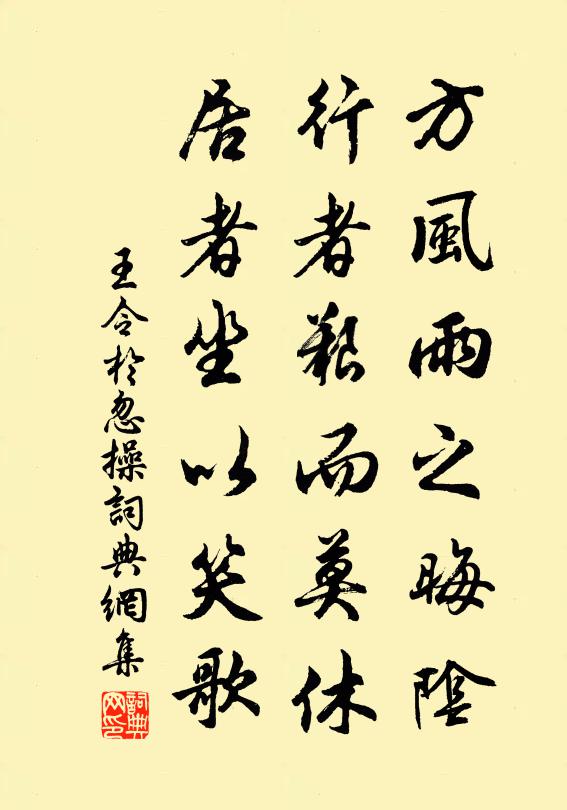 方風雨之晦陰
行者艱而莫休
居者坐以笑歌
王令於忽操詞典網集
詞典网印